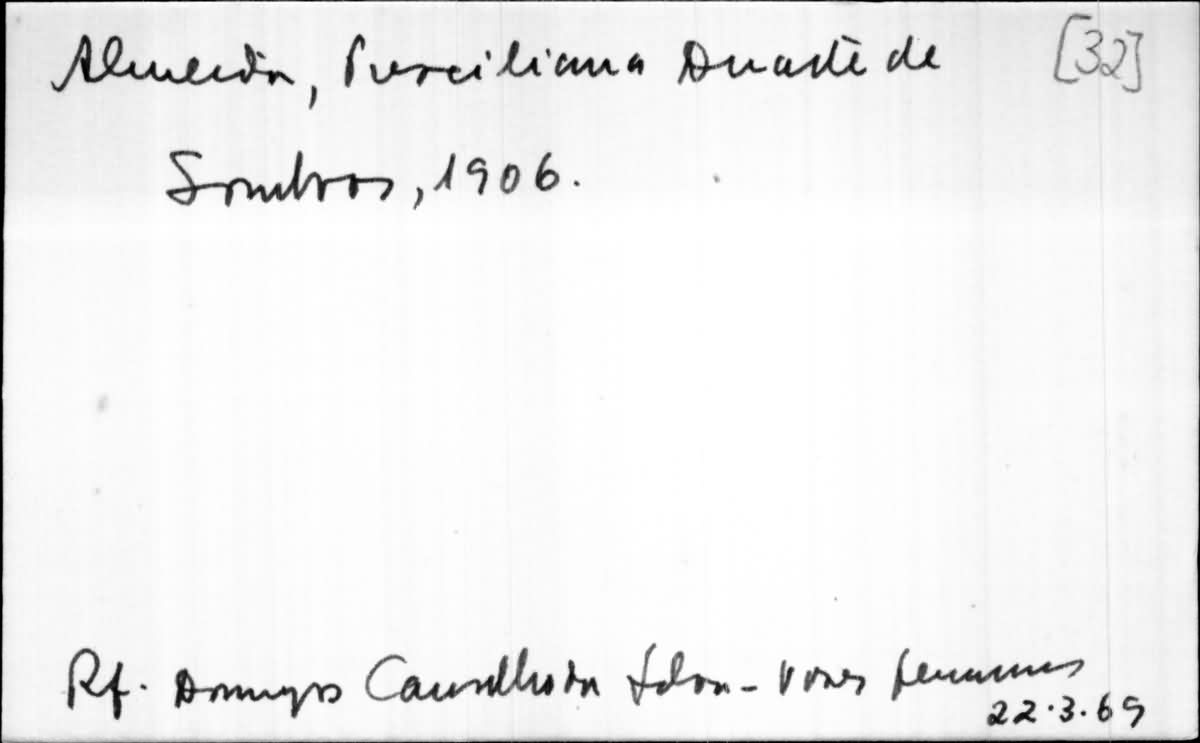 Almeida, Presciliana Duarte de [32]
Sombras, 1906.
Rf. Domingos Carvalho da Silva - Vozes femininas
22.3.69